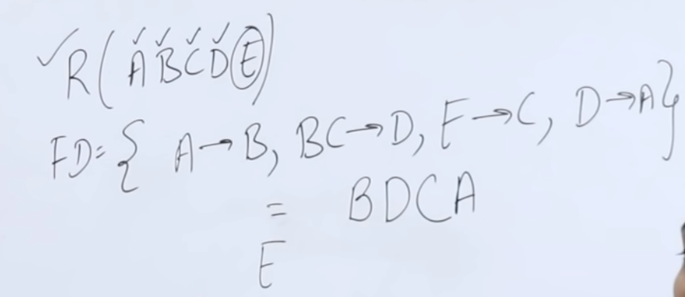 ✓R(ABCDE)
FD={ A→B, BC→D, E→C, D→A}
= BDCA
E